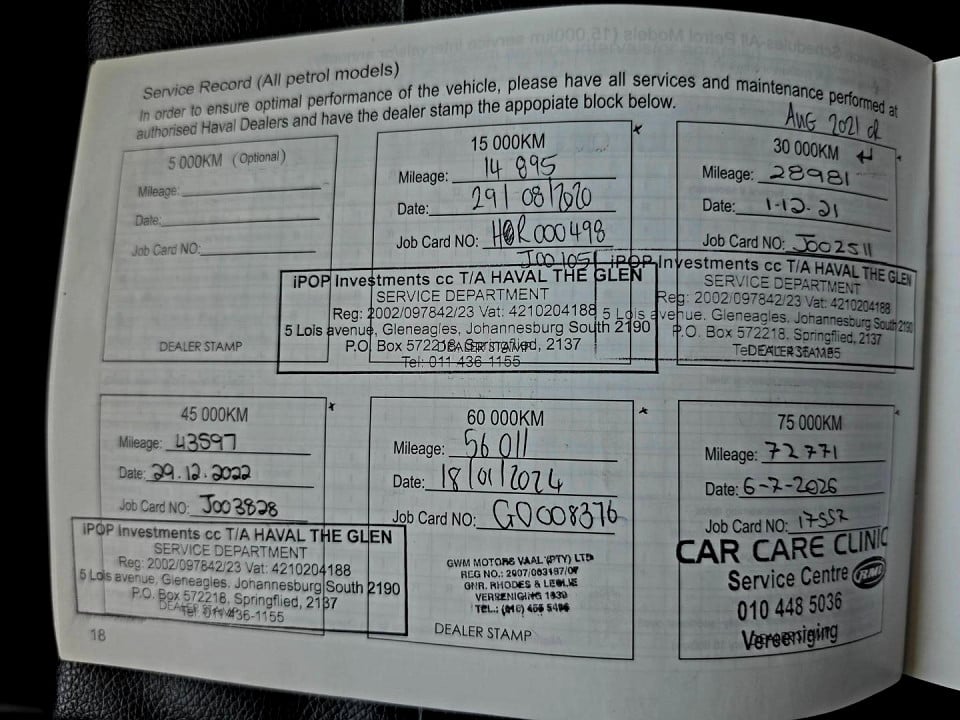 Service Record (All petrol models)
In order to ensure optimal performance of the vehicle, please have all services and maintenance performed at
authorised Haval Dealers and have the dealer stamp the appopiate block below.
Aug 2021
5 000KM (Optional)
Mileage:
Date:
Job Card NO:
DEALER STAMP
15 000KM
Mileage: 14 895
Date: 29/08/2020
Job Card NO: HOR000498
J001051
iPOP Investments cc T/A HAVAL THE GLEN
SERVICE DEPARTMENT
Reg: 2002/097842/23 Vat: 4210204188
5 Lois avenue, Gleneagles, Johannesburg South 2190
P.O. Box 572218, Springflied, 2137
DEALER STAMP
Tel: 011 436-1155
30 000KM
Mileage: 28981
Date: 1-12-21
Job Card NO: J002511
iPOP Investments cc T/A HAVAL THE GLEN
SERVICE DEPARTMENT
Reg: 2002/097842/23 Vat: 4210204188
5 Lois avenue, Gleneagles, Johannesburg South 2190
P.O. Box 572218, Springflied, 2137
DEALER STAMP
45 000KM
Mileage: 43597
Date: 29.12.2022
Job Card NO: J003828
iPOP Investments cc T/A HAVAL THE GLEN
SERVICE DEPARTMENT
Reg: 2002/097842/23 Vat: 4210204188
5 Lois avenue, Gleneagles, Johannesburg South 2190
P.O. Box 572218, Springflied, 2137
DEALER STAMP
Tel: 011 436-1155
60 000KM
Mileage: 56 011
Date: 18/01/2024
Job Card NO: G0008376
GWM MOTORS VAAL (PTY) LTD
REG NO.: 2007/083187/07
CNR. RHODES & LESLIE
VEREENIGING 1939
TEL.: (016) 455
DEALER STAMP
75 000KM
Mileage: 72771
Date: 6-7-2026
Job Card NO: 17557
CAR CARE CLINIC
Service Centre RMI
010 448 5036
Vereeniging
18